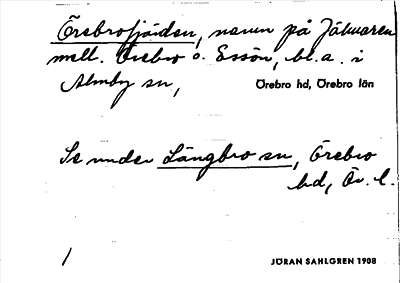 Örebrofjärden, namn på Hjälmaren
mell. Örebro o. Essön, bl.a. i
Almby sn, Örebro hd, Örebro län
Se under Längbro sn, Örebro
hd, Ör. l.
1
JÖRAN SAHLGREN 1908